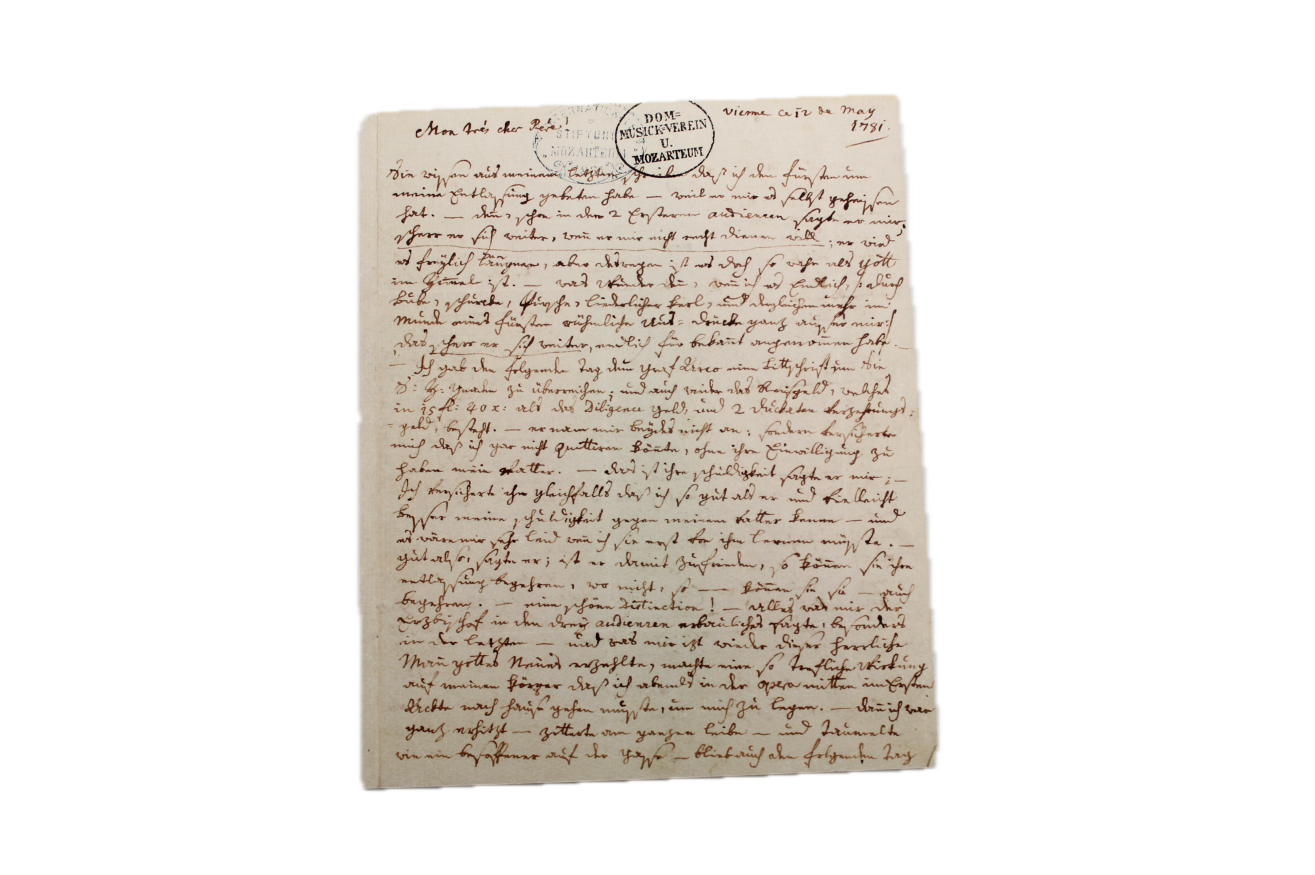 vienne ce 12 de May
1781.
Mon trés cher Pére!
STIFTUNG
MOZARTEUM
DOM=
MUSICK-VEREIN
U.
MOZARTEUM
Sie wissen aus meinem letzten schreiben, daß ich den fürsten um
meine Entlassung gebeten habe — weil er mir es selbst geheissen
hat. — denn schon in den 2 Ersteren audienzen sagte er mir;
scherr er sich weiter, wenn er mir nicht recht dienen will; er wird
es freylich läugnen, aber deswegen ist es doch so wahr als gott
im Himmel ist. — was Wunder denn, wenn ich es Endlich, /: durch
bube, schurcke, Pursche, liederlicher kerl, und dergleichen mehr im
Munde eines fürsten rühmliche Aus=drücke ganz ausser mir :/
das scherr er sich weiter, endlich für bekannt angenommen habe.
— Ich gab den folgenden Tag dem graf Arco eine bittschrift um sie
S: H: gnaden zu überreichen; und auch wieder das Reisgeld, welches
in 15 fl: 40 x: als das Diligence geld, und 2 duckaten verzehrungs=
=geld, besteht. — er nam mir beydes nicht an; sondern versicherte
mich daß ich gar nicht quittiren könnte, ohne ihre Einwilligung zu
haben mein vatter. — das ist ihre schuldigkeit sagte er mir; —
Ich versicherte ihn gleichfalls daß ich so gut als er und vielleicht
besser meine schuldigkeit gegen meinem vatter kenne — und
es wäre mir sehr leid wenn ich sie erst von ihm lernen müsste. —
gut also, sagte er; ist er damit zufrieden, so können sie ihre
entlassung begehren, wo nicht, so — können sie sie — auch
begehren. — eine schöne distinction! — alles was mir der
Erzbischof in den drey audienzen erbauliches sagte, besonders
in der letzten — und was mir izt wieder dieser herrliche
Mann gottes Neues erzehlte, machte eine so trefliche Wirkung
auf meinen körper daß ich abends in der opera mitten im Ersten
Ackte nach hause gehen musste, um mich zu legen. — dann ich war
ganz erhitzt — zitterte am ganzen leibe — und taumelte
wie ein besoffener auf der gasse — blieb auch den folgenden tag